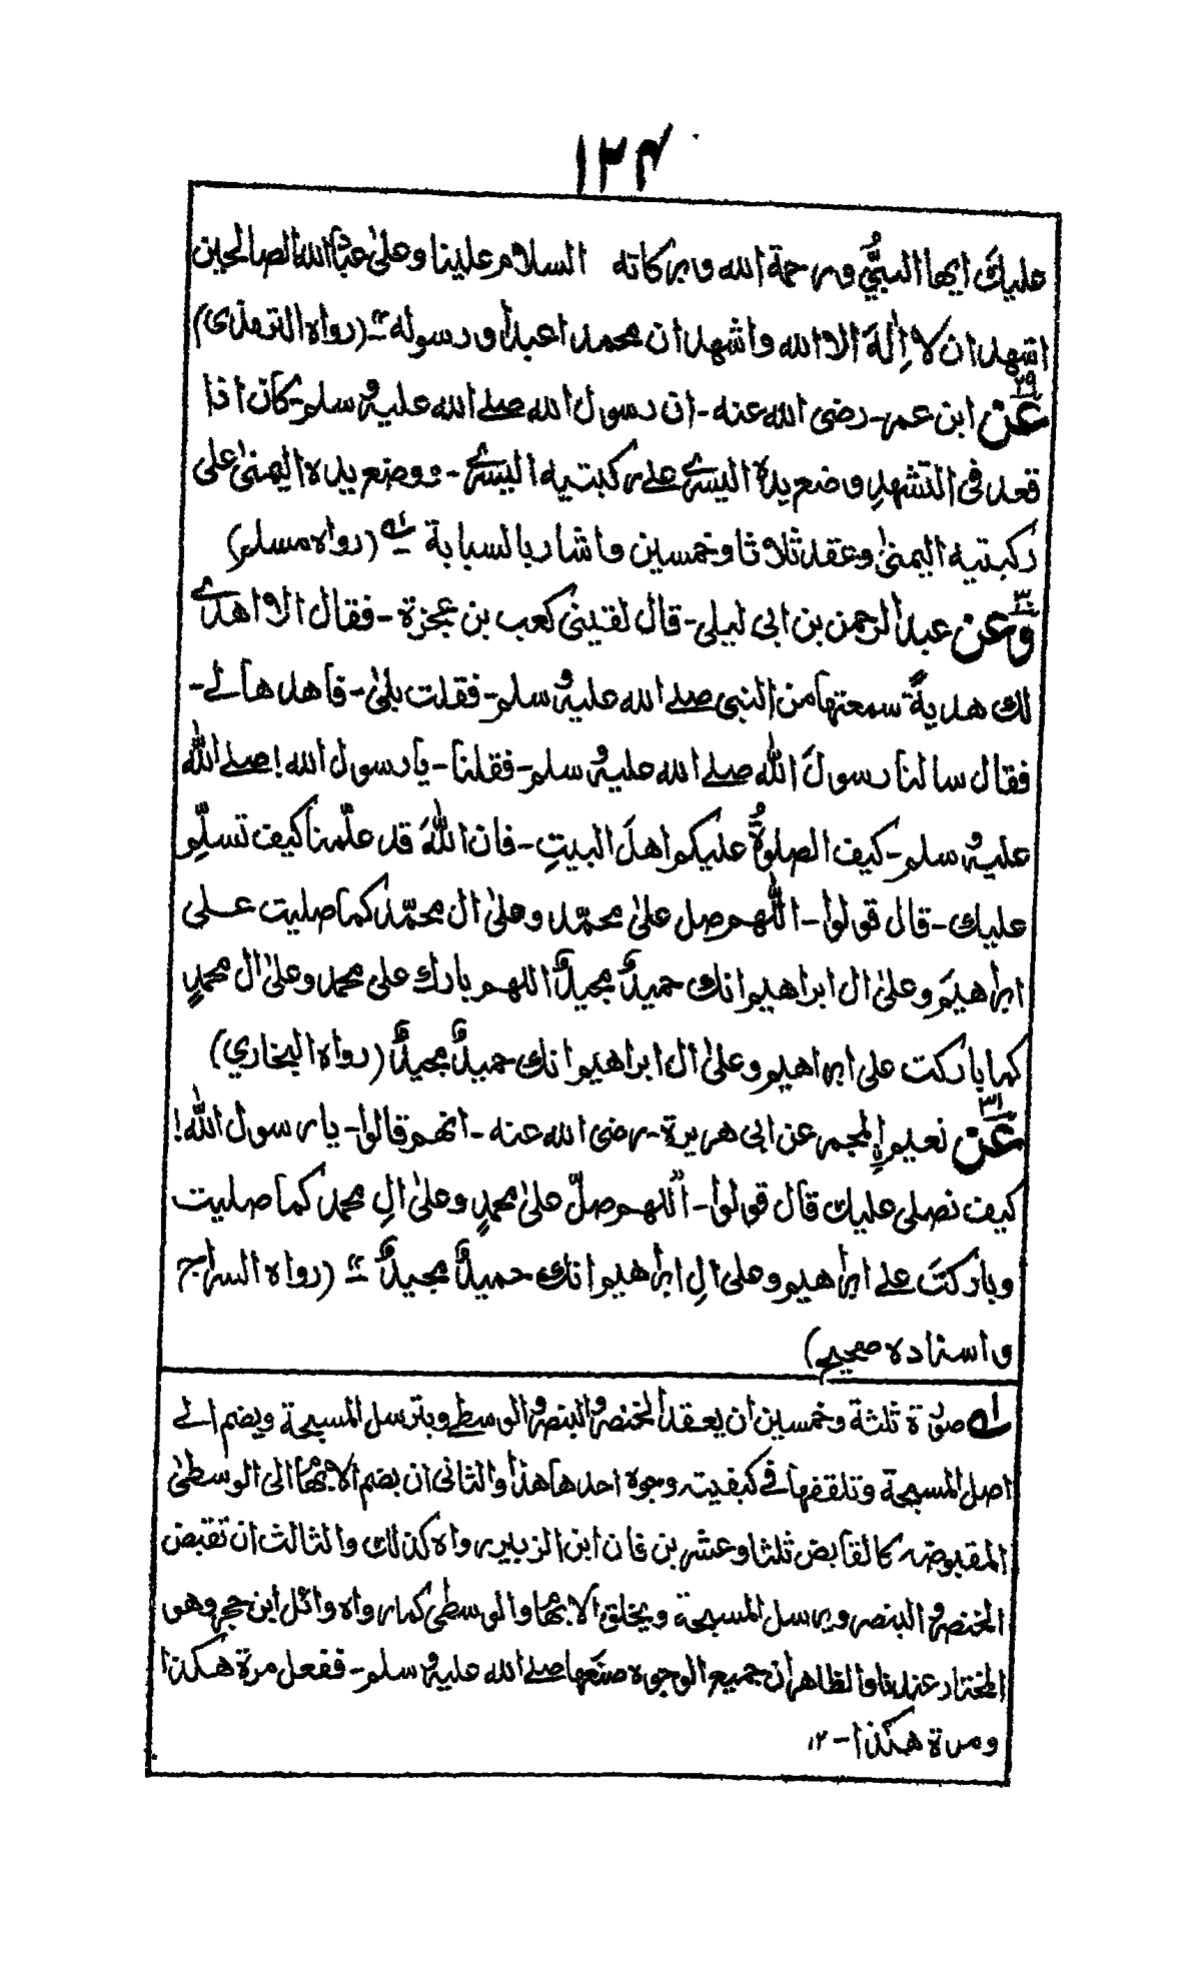 ١٢٤
عليك ايها النبيُّ ورحمة الله وبركاته السلام علينا وعلىٰ عباد الله الصالحين
اشهد ان لا اِلٰهَ الا الله واشهد ان محمدا عبدهٗ ورسوله (رواه الترمذى)
٢٩
عَن ابن عمر۔ رضى الله عنه ۔ ان رسول الله صلے الله عليهٖ وسلم۔ كان اذا
قعد فى التشهدِ وضع يدهٗ اليسرٰے علے ركبتيه اليسرٰے ۔ ووضع يده اليمنىٰ على
ركبتيه اليمنىٰ وعقد ثلاثا وخمسين واشار بالسبابة لہ (رواه مسلم)
٣٠
وعن عبد الرحمن بن ابى ليلى ۔ قال لقينى كعب بن عجرة ۔ فقال الا اهدے
لك هديةً سمعتها من النبى صلے الله عليهٖ وسلم۔ فقلت بلىٰ ۔ فاهدها لے ۔
فقال سالنا رسولَ اللّٰه صلے الله عليهٖ وسلم۔ فقلنا ۔ يا رسول الله! صلے اللّٰه
عليهٖ وسلم۔ كيف الصلوةُ عليكم اهلَ البيتِ ۔ فان اللّٰهَ قد علّمنا كيف نسلِّم
عليك ۔ قال قولوا ۔ اللّٰهم صل علىٰ محمّد وعلىٰ ال محمّد كما صليت على
ابراهيمَ وعلىٰ ال ابراهيم انك حميدٌ مجيدٌ اللهم بارك على محمد وعلىٰ ال محمدٍ
كما باركت على ابراهيم وعلىٰ ال ابراهيم انك حميدٌ مجيدٌ (رواه البخاري)
٣١
عَن نعيم المجمر عن ابى هريرة ۔ رضى الله عنه ۔ انهم قالوا ۔ يا رسول اللّٰه!
كيف نصلى عليك قال قولوا ۔ اللهم صلّ علىٰ محمدٍ وعلىٰ الِ محمد كما صليت
وباركتَ علے ابراهيم وعلى الِ ابراهيم انك حميدٌ مجيدٌ (رواه السراج
واسناده صحيح)
لہ صورة ثلثة وخمسين ان يعقد الخنصر والبنصر والوسطے ويرسل المسبحة ويضم الے
اصل المسبحة وتلقفها فے كيفيته وجوه احدها هذا والثانى ان يضم الابهام الى الوسطىٰ
المقبوضه كالقابض ثلثا وعشرين فان ابن الزبير رواه كذلك والثالث ان تقبض
الخنصر والبنصر ويرسل المسبحة ويحلق الابهام والوسطىٰ كما رواه وائل ابن حجر وهو
المختار عندنا والظاهر ان جميع الوجوه صنعها صلے الله عليهٖ وسلم ۔ ففعل مرة هكذا
ومرة هكذا ۔ ١٢